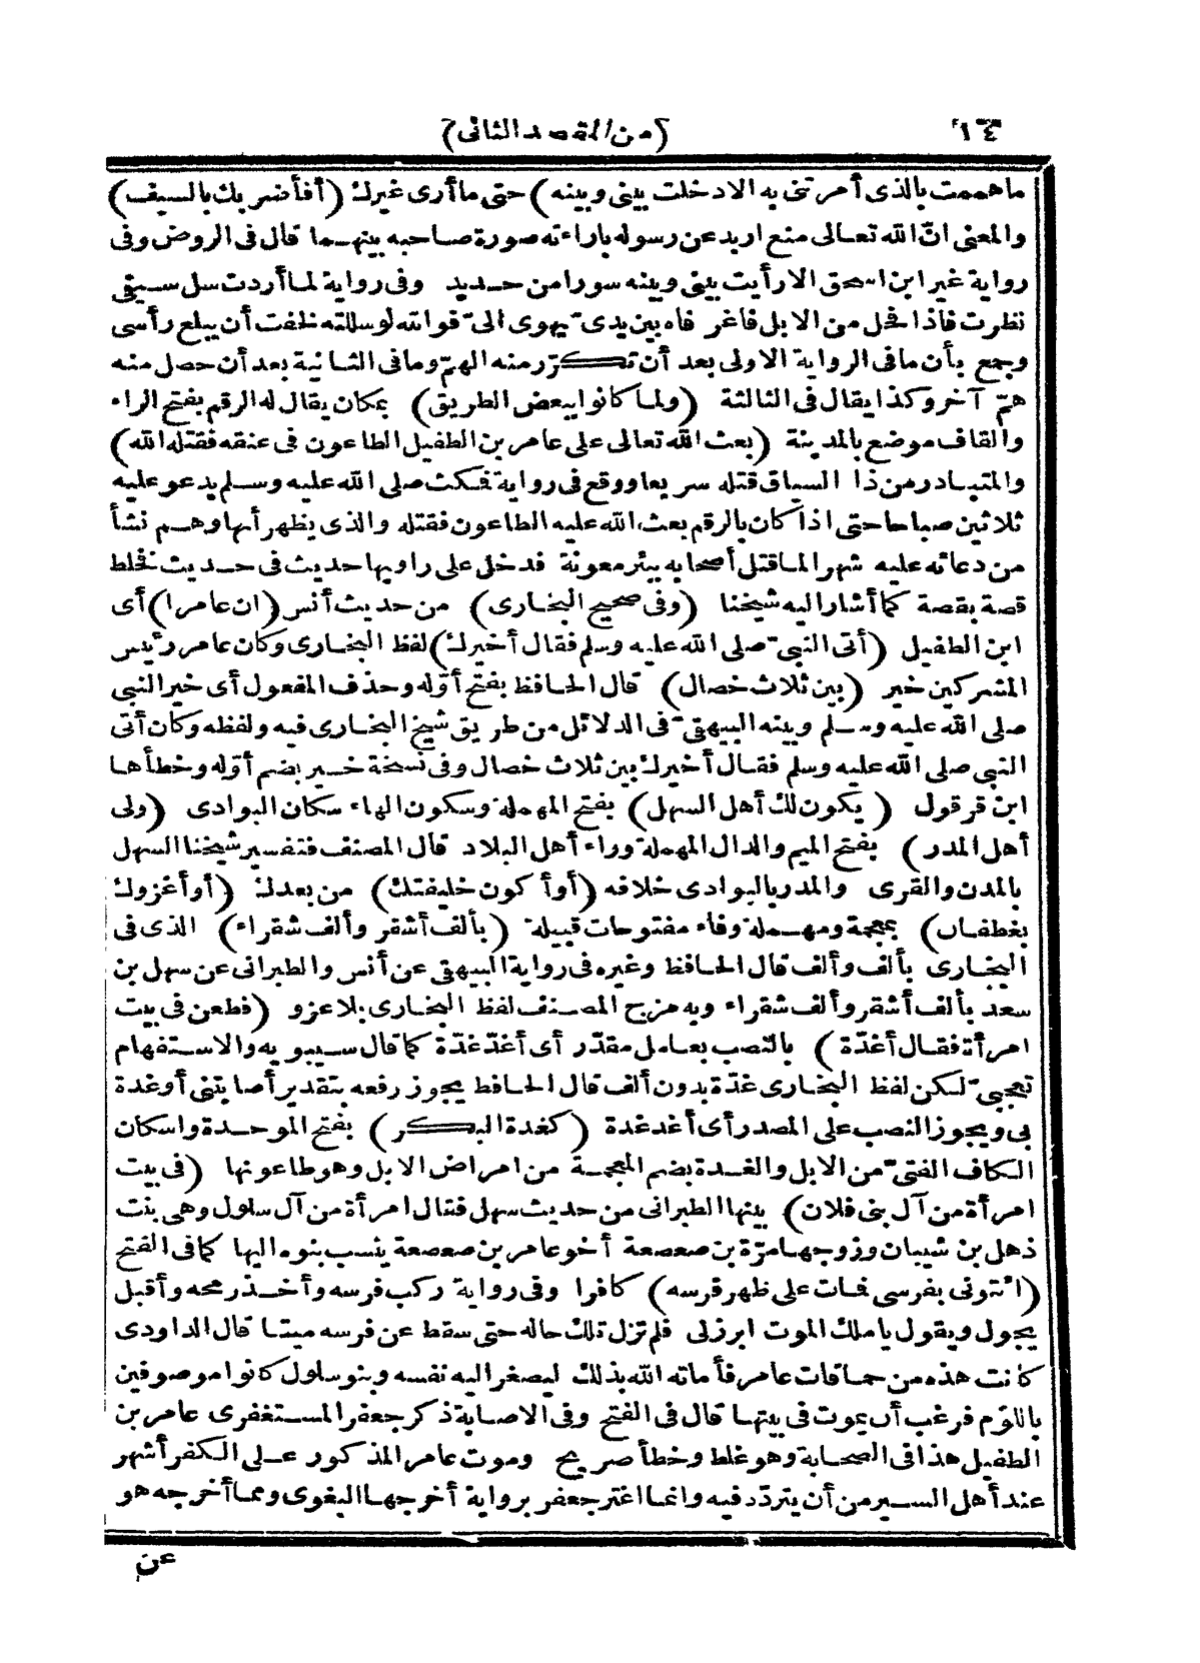 ١٤ (من المقصد الثانى)
ما هممت بالذى أمرتنى به الا دخلت بينى وبينه) حتى ما أرى غيرك (أفأضربك بالسيف)
والمعنى انّ الله تعالى منع اربد عن رسوله باراءته صورة صاحبه بينهما قال فى الروض وفى
رواية غير ابن اسحق الا رأيت بينى وبينه سورا من حديد وفى رواية لما أردت سل سيفى
نظرت فاذا فحل من الابل فاغر فاه بين يدىّ يهوى الىّ فوالله لو سللته نلفت أن يبلع رأسى
وجمع بأن ما فى الرواية الاولى بعد أن تكرّر منه الهمّ وما فى الثانية بعد أن حصل منه
همّ آخر وكذا يقال فى الثالثة (ولما كانوا ببعض الطريق) بمكان يقال له الرقم بفتح الراء
والقاف موضع بالمدينة (بعث الله تعالى على عامر بن الطفيل الطاعون فى عنقه فقتله الله)
والمتبادر من ذا السياق قتله سريعا ووقع فى رواية فمكث صلى الله عليه وسلم يدعو عليه
ثلاثين صباحا حتى اذا كان بالرقم بعث الله عليه الطاعون فقتله والذى يظهر أنها وهم نشأ
من دعائه عليه شهرا لما قتل أصحابه ببئر معونة فدخل على راويها حديث فى حديث نخلط
قصة بقصة كما أشار اليه شيخنا (وفى صحيح البخارى) من حديث أنس (ان عامرا) أى
ابن الطفيل (أتى النبىّ صلى الله عليه وسلم فقال أخيرك) لفظ البخارى وكان عامر رئيس
المشركين خير (بين ثلاث خصال) قال الحافظ بفتح أوّله وحذف المفعول أى خير النبى
صلى الله عليه وسلم وبينه البيهقىّ فى الدلائل من طريق شيخ البخارى فيه ولفظه وكان أتى
النبى صلى الله عليه وسلم فقال أخيرك بين ثلاث خصال وفى نسخة خير بضم أوّله وخطأها
ابن قرقول (يكون لك أهل السهل) بفتح المهملة وسكون الهاء سكان البوادى (ولى
أهل المدر) بفتح الميم والدال المهملة وراء أهل البلاد قال المصنف فتفسير شيخنا السهل
بالمدن والقرى والمدر بالبوادى خلافه (أو أكون خليفتك) من بعدك (أو أغزوك
بغطفان) بمعجمة ومهملة وفاء مفتوحات قبيلة (بألف أشقر وألف شقراء) الذى فى
البخارى بألف وألف قال الحافظ وغيره فى رواية البيهقى عن أنس والطبرانى عن سهل بن
سعد بألف أشقر وألف شقراء وبه مزج المصنف لفظ البخارى بلا عزو (فطعن فى بيت
امرأة فقال أغدّة) بالنصب بعامل مقدّر أى أغدّ غدّة كما قال سيبويه والاستفهام
تعجبىّ لكن لفظ البخارى غدّة بدون ألف قال الحافظ يجوز رفعه بتقدير أصابتنى أو غدة
بى ويجوز النصب على المصدر أى أغد غدة (كغدة البكر) بفتح الموحدة واسكان
الكاف الفتىّ من الابل والغدة بضم المعجمة من امراض الابل وهو طاعونها (فى بيت
امرأة من آل بنى فلان) بينها الطبرانى من حديث سهل فقال امرأة من آل سلول وهى بنت
ذهل بن شيبان وزوجها مرّة بن صعصعة أخو عامر بن صعصعة ينسب بنوه اليها كما فى الفتح
(ائتونى بفرسى فمات على ظهر فرسه) كافرا وفى رواية ركب فرسه وأخذ رمحه وأقبل
يجول ويقول يا ملك الموت ابرزلى فلم تزل تلك حاله حتى سقط عن فرسه ميتا قال الداودى
كانت هذه من حماقات عامر فأماته الله بذلك ليصغر اليه نفسه وبنو سلول كانوا موصوفين
باللؤم فرغب أن يموت فى بيتها قال فى الفتح وفى الاصابة ذكر جعفر المستغفرى عامر بن
الطفيل هذا فى الصحابة وهو غلط وخطأ صريح وموت عامر المذكور على الكفر أشهر
عند أهل السير من أن يتردّد فيه وانما اغتر جعفر برواية أخرجها البغوى ومما أخرجه هو
عن